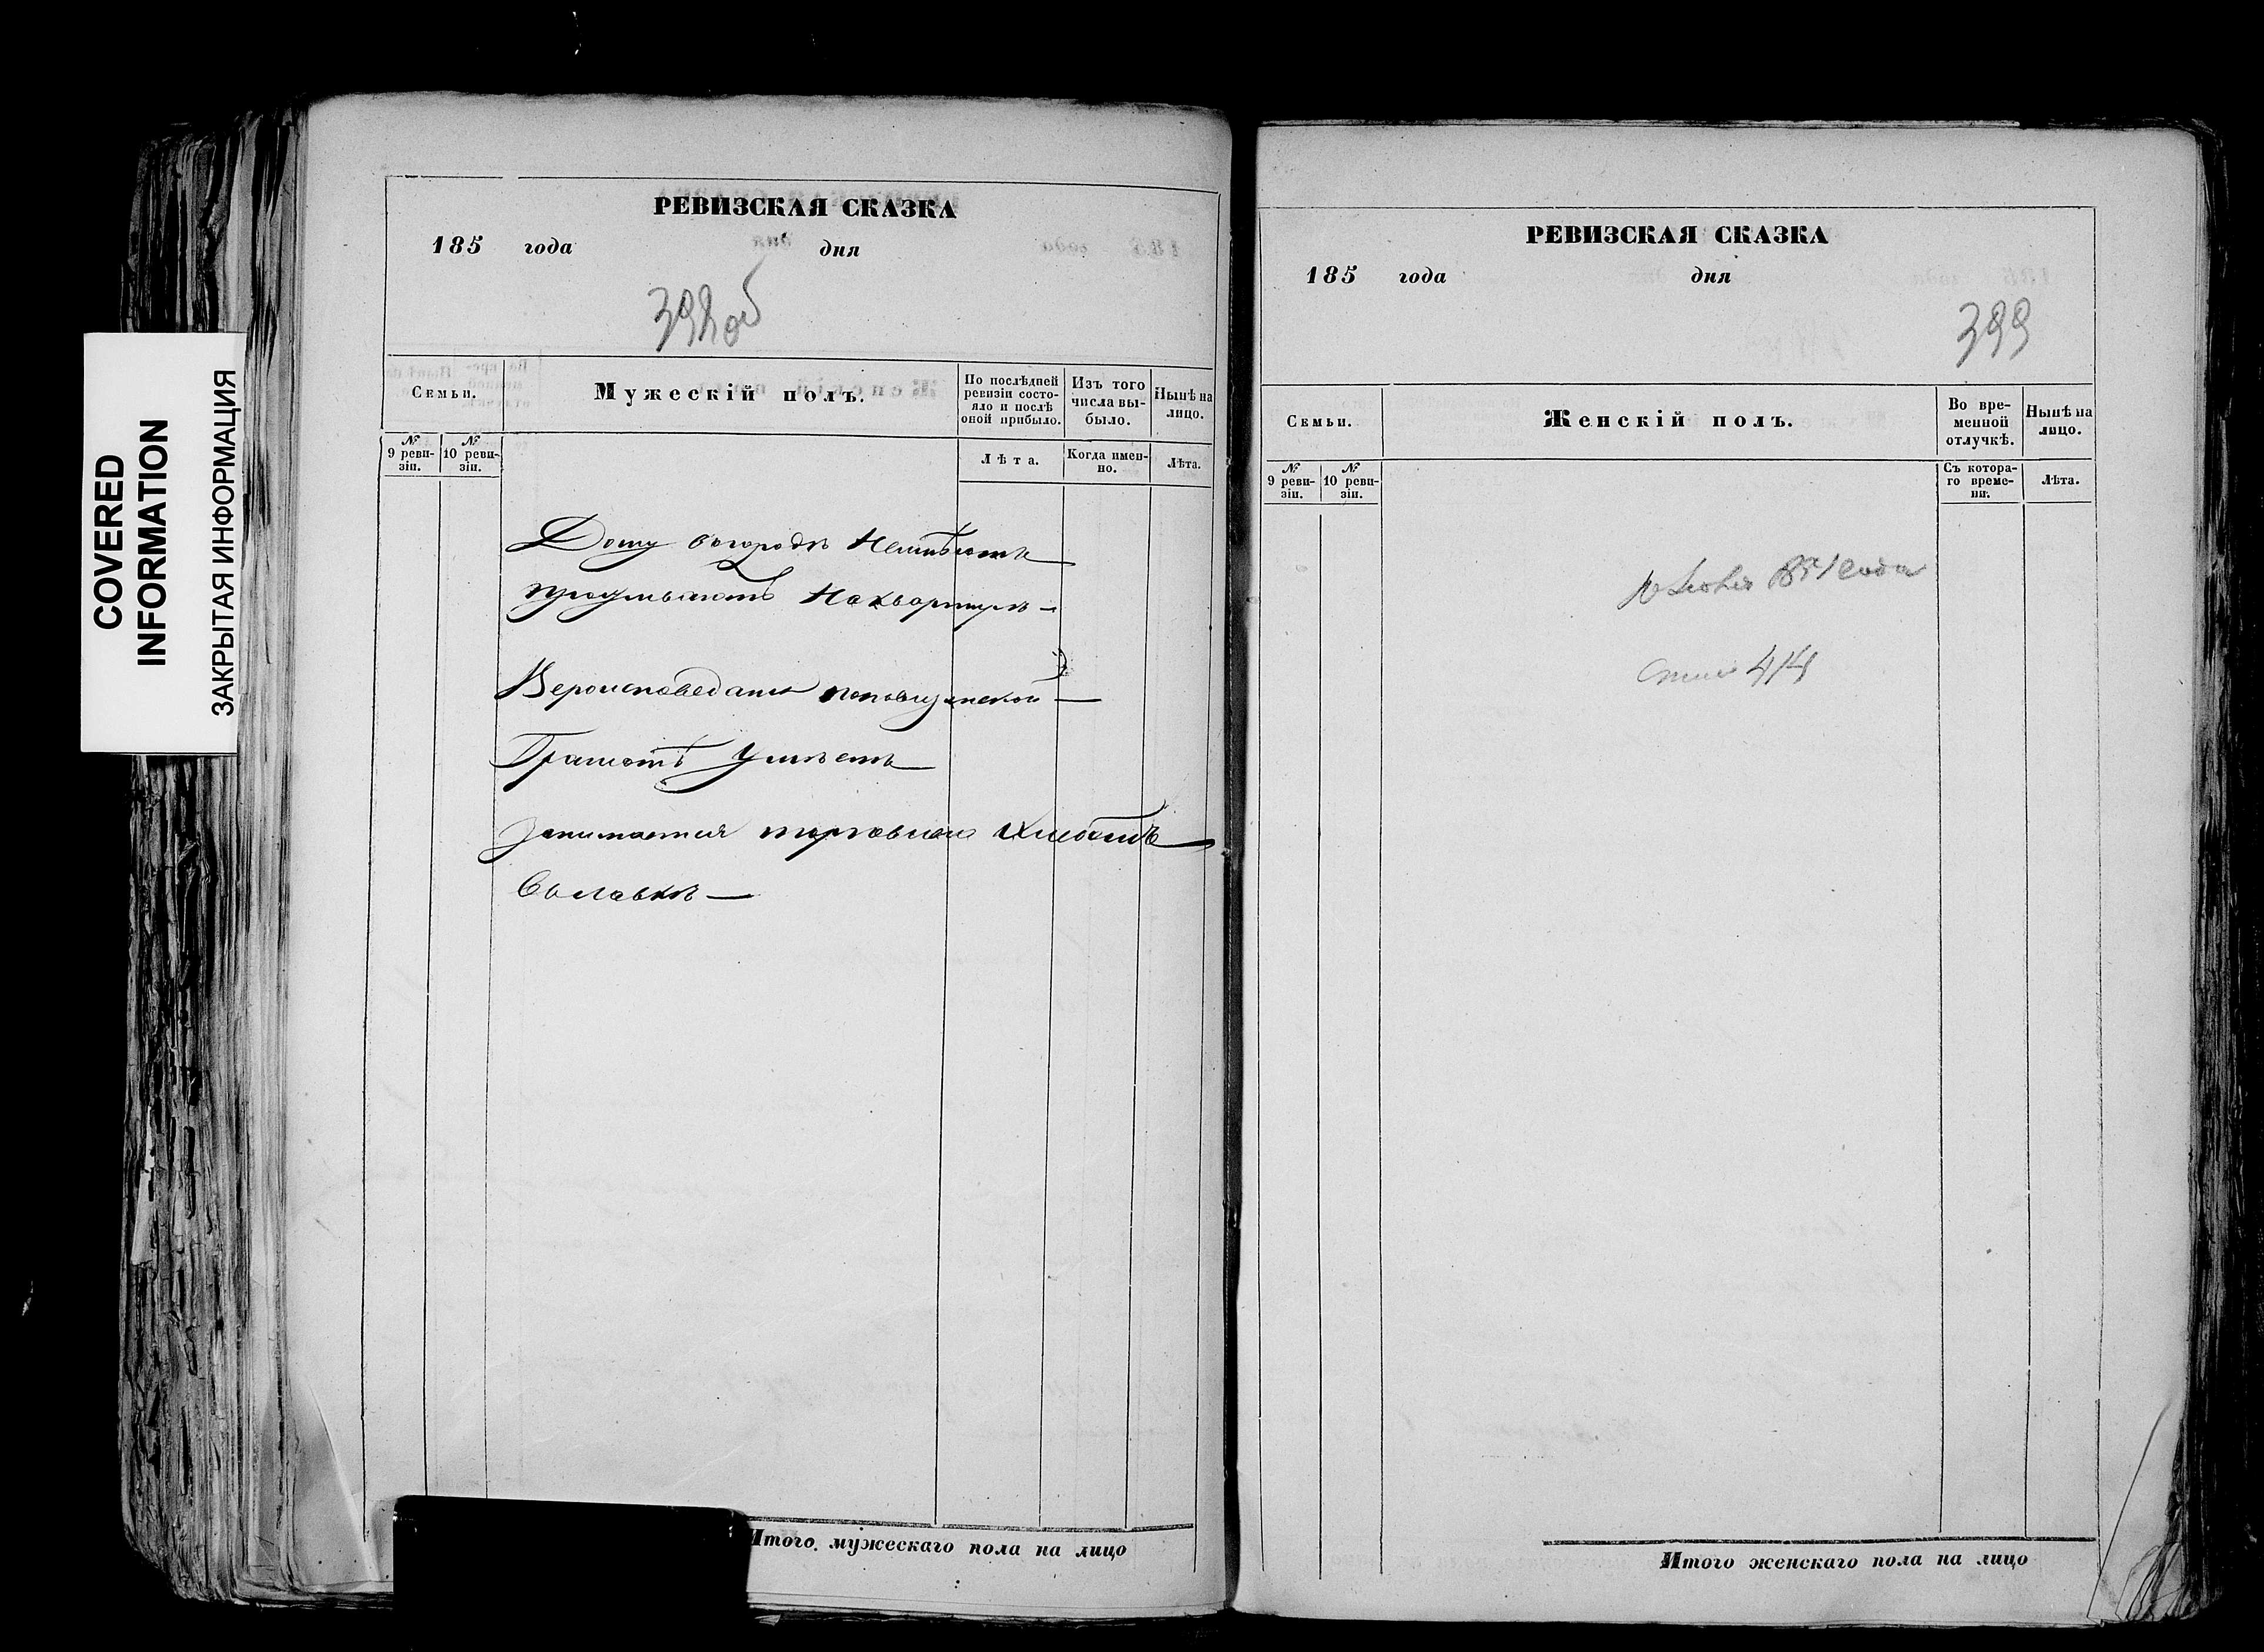 COVERED
INFORMATION
ЗАКРЫТАЯ ИНФОРМАЦИЯ
РЕВИЗСКАЯ СКАЗКА
185 года дня
398об
Семьи.
Мужескій полъ.
По послѣдней ревизіи состояло и послѣ оной прибыло.
Изъ того числа выбыло.
Нынѣ на лицо.
№ 9 ревизіи.
№ 10 ревизіи.
Лѣта.
Когда именно.
Лѣта.
Дому вогородѣ Неимѣютъ
проживаютъ Наквартирѣ
Вероисповедания
Грамотѣ Умѣетъ
Занимается торговлею
Вылавкѣ
Итого мужескаго пола на лицо
РЕВИЗСКАЯ СКАЗКА
185 года дня
399
Семьи.
Женскій полъ.
Во временной отлучкѣ.
Нынѣ на лицо.
№ 9 ревизіи.
№ 10 ревизіи.
Съ котораго времени.
Лѣта.
1851 года
414
Итого женскаго пола на лицо